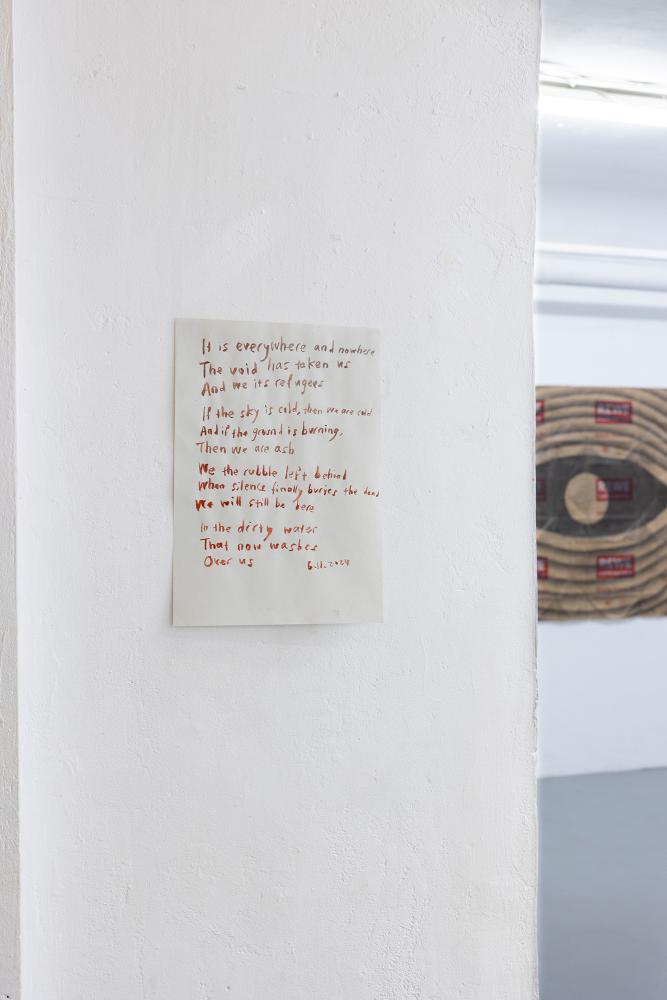 It is everywhere and nowhere
The void has taken us
And we its refugees
If the sky is cold, then we are cold
And if the ground is burning,
Then we are ash
We the rubble left behind
When silence finally buries the dead
We will still be here
In the dirty water
That now washes
Over us 6.11.2024